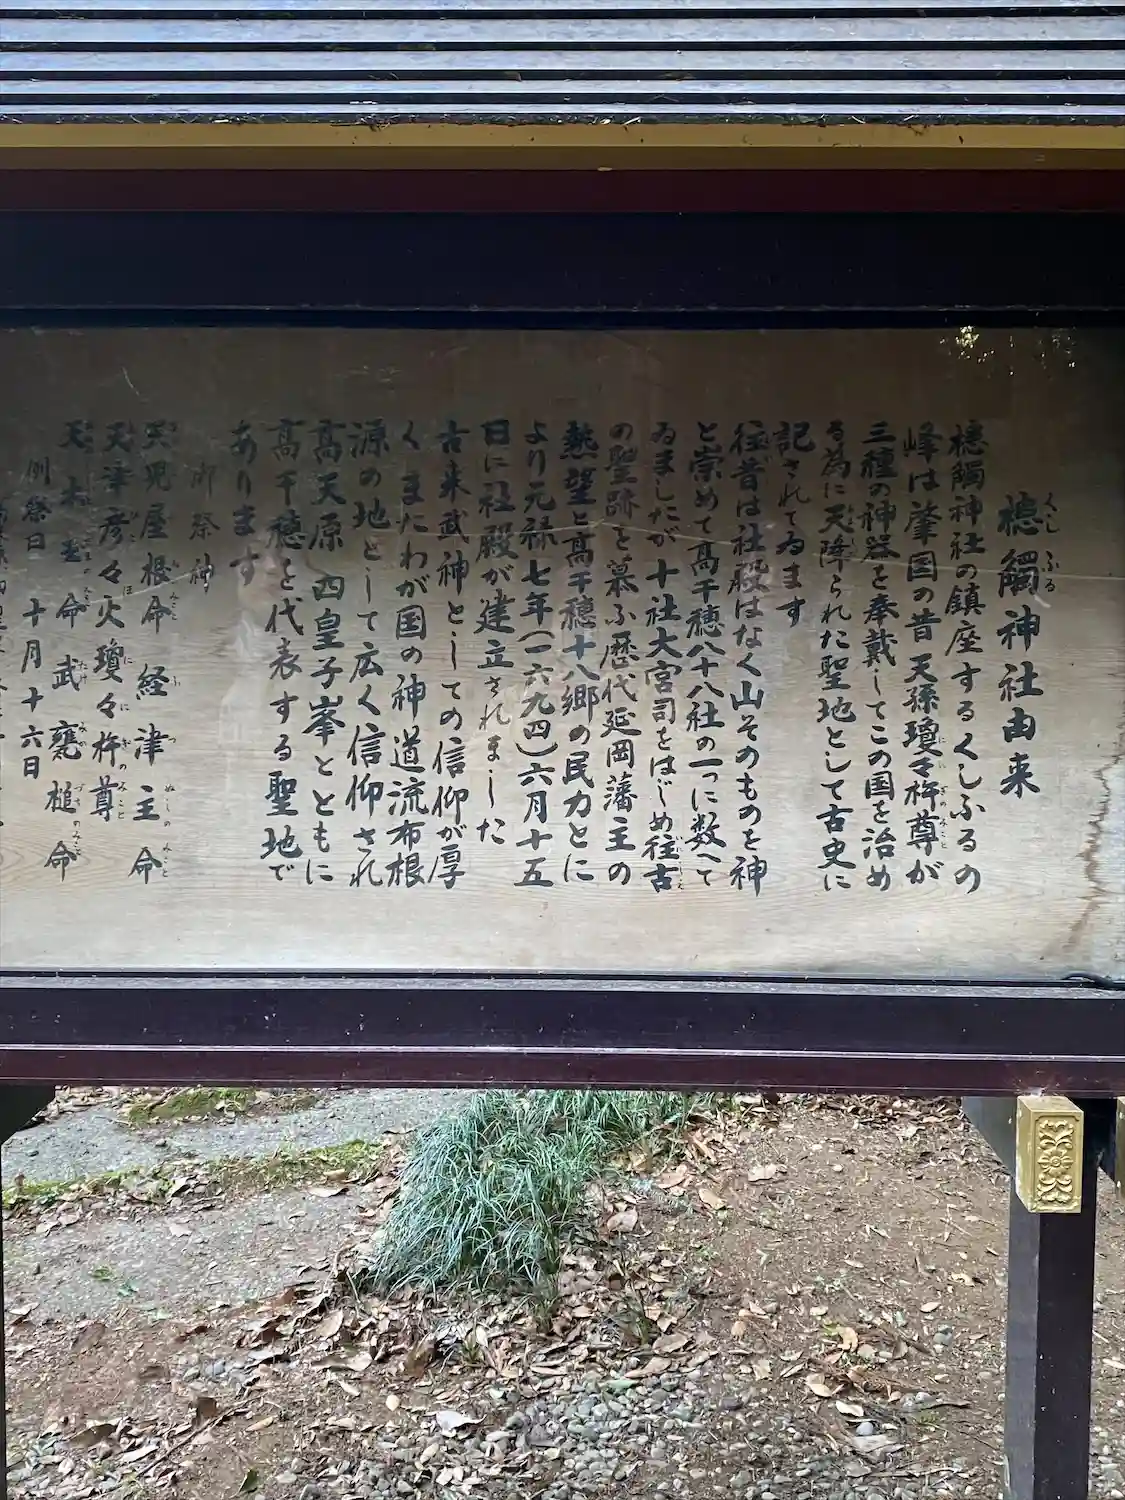 槵觸神社由来
槵觸神社の鎮座するくしふるの
峰は肇国の昔天孫瓊々杵尊が
三種の神器を奉戴してこの国を治め
る為に天降られた聖地として古史に
記されてゐます
往昔は社殿はなく山そのものを神
と崇めて高千穂八十八社の一つに数へて
ゐましたが十社大宮司をはじめ往古
の聖跡を慕ふ歴代延岡藩主の
熱望と高千穂十八郷の民力とに
より元禄七年(一六九四)六月十五
日に社殿が建立されました
古来武神としての信仰が厚
くまたわが国の神道流布根
源の地として広く信仰され
高天原四皇子峯とともに
高千穂を代表する聖地で
あります
御祭神
天児屋根命 経津主命
天津彦々火瓊々杵尊
天太玉命 武甕槌命
例祭日 十月十六日